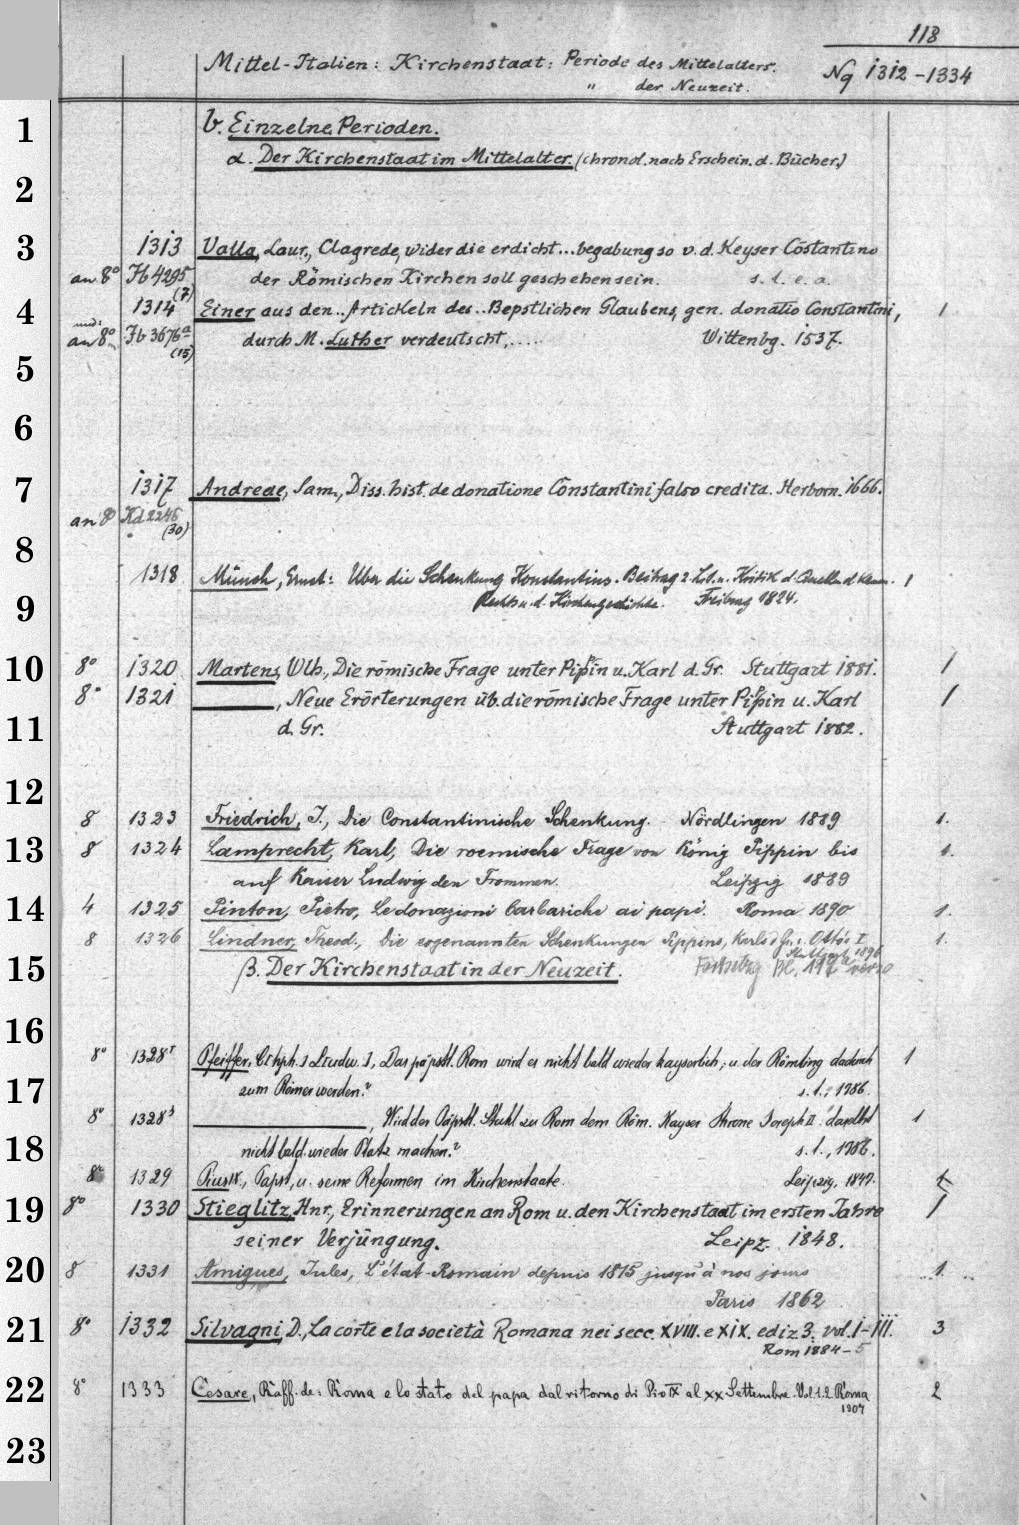 118
Mittel-Italien: Kirchenstaat: Periode des Mittelalters.
" der Neuzeit.
Nq 1312-1334
1
b. Einzelne Perioden.
α. Der Kirchenstaat im Mittelalter. (chronol. nach Erschein. d. Bücher.)
2
3
1313 Valla, Laur., Clagrede, wider die erdicht...begabung so v. d. Keyser Cōstantino
an 8° Fb 4295 (7) der Römischen Kirchen soll geschehen sein. s. l. e. a.
4
1314 Einer aus den..Artickeln des..Bepstlichen Glaubens, gen. donatio Constantini, 1
and: an 8° Fb 3676a (15) durch M. Luther verdeutscht,..... Wittenbg. 1537.
5
6
7
1317 Andreae, Sam., Diss. hist. de donatione Constantini falso credita. Herborn. 1666.
an 8° Kd 2246 (30)
8
1318 Münch, Ernst: Über die Schenkung Konstantins. Beitrag z. Lit. u. Kritik d. Quellen d. 1
9
Rechts u. d. Kirchengeschichte. Freiburg 1824.
10
8° 1320 Martens, Wlh., Die römische Frage unter Pippin u. Karl d. Gr. Stuttgart 1881. 1
8° 1321 , Neue Erörterungen üb. die römische Frage unter Pippin u. Karl 1
11
d. Gr. Stuttgart 1882.
12
8 1323 Friedrich, J., Die Constantinische Schenkung. Nördlingen 1889 1.
13
8 1324 Lamprecht, Karl, Die roemische Frage von König Pippin bis 1.
auf Kaiser Ludwig den Frommen. Leipzig 1889
14
4 1325 Pinton, Pietro, Le donazioni barbariche ai papi. Roma 1890 1.
8 1326 Lindner, Theod., Die sogenannten Schenkungen Pippins, Karls d. Gr. u. Ottos I 1.
Stuttgart 1896
15
β. Der Kirchenstaat in der Neuzeit. Fortsetzg Bl. 117 verso
16
8° 1328¹ Pfeiffer, Chph. Ludw., Das päpstl. Rom wird es nicht bald wieder kayserlich, u. der Römling dadurch 1
17
zum Römer werden? s. l., 1786.
8° 1328³ , Wird der Päpstl. Stuhl zu Rom dem Röm. Kayser Throne Joseph II. daselbst 1
18
nicht bald wieder Platz machen? s. l., 1786.
8° 1329 Pius IX., Papst, u. seine Reformen im Kirchenstaate. Leipzig. 1847. 1
19
8° 1330 Stieglitz, Hnr., Erinnerungen an Rom u. den Kirchenstaat im ersten Jahre 1
seiner Verjüngung. Leipz. 1848.
20
8 1331 Amigues, Jules, L'état Romain depuis 1815 jusqu'à nos jours 1
Paris 1862
21
8° 1332 Silvagni, D., La corte e la società Romana nei secc. XVIII. e XIX. ediz 3. vol. I-III. 3
Rom 1884-5
22
8° 1333 Cesare, Raff. de: Roma e lo stato del papa dal ritorno di Pio IX al XX Settembre. Vol. 1.2. Roma 2
1907
23